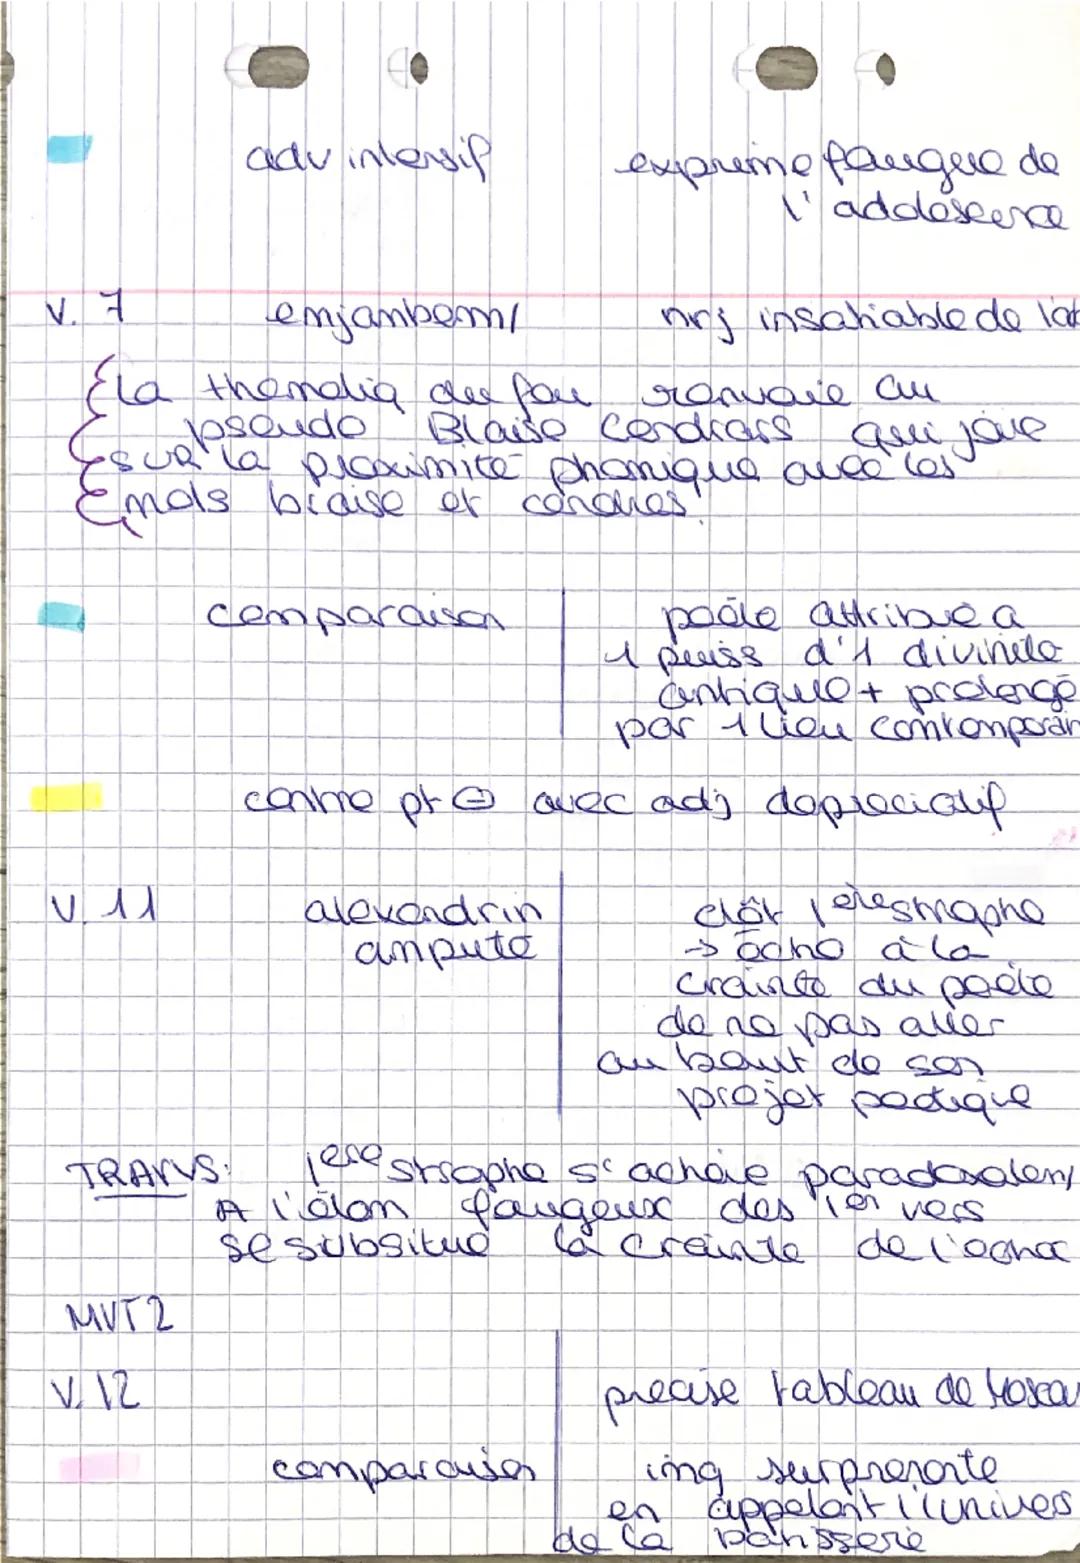 adv intensif exprime fougue de
l'addolescence
V. 7 enjambem/ nrj insatiable de l'ad
La thématiq du feu renvoie au
pseudo Blaise Cendrars qui joue
sur la proximité phonique avec les
mots braise et cendres.
comparaison poète attribue a
1 puiss d'1 divinité
antique + prolongé
par 1 lieu contemporain
comme pt ⊖ avec adj dépréciatif
V. 11 alexandrin clôt 1ère strophe
amputé → écho à la
crainte du poète
de ne pas aller
au bout de son
projet poétique
TRANS: 1ere strophe s'achève paradoxalem/
A l'élan fougeux des 1er vers
se subsitue la crainte de l'echec
MVT 2
V. 12 précise tableau de Moscou
comparaison img surprenante
en appelant l'univers
de la patisserie